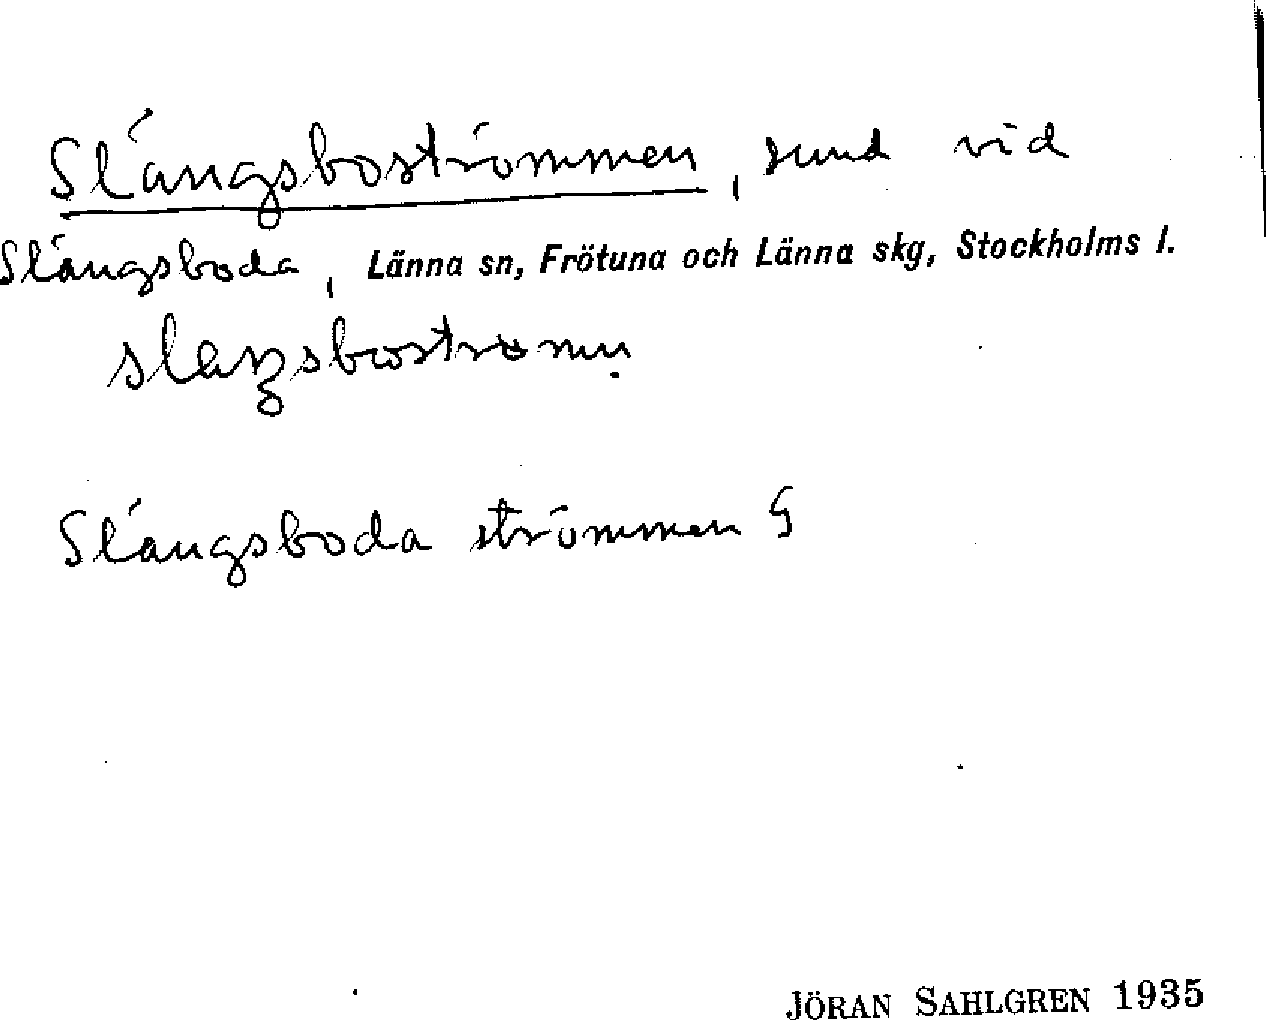 Slängsboströmmen, sund vid
Slängsboda, Länna sn, Frötuna och Länna skg, Stockholms l.
Slängsboda strömmen G
JÖRAN SAHLGREN 1935